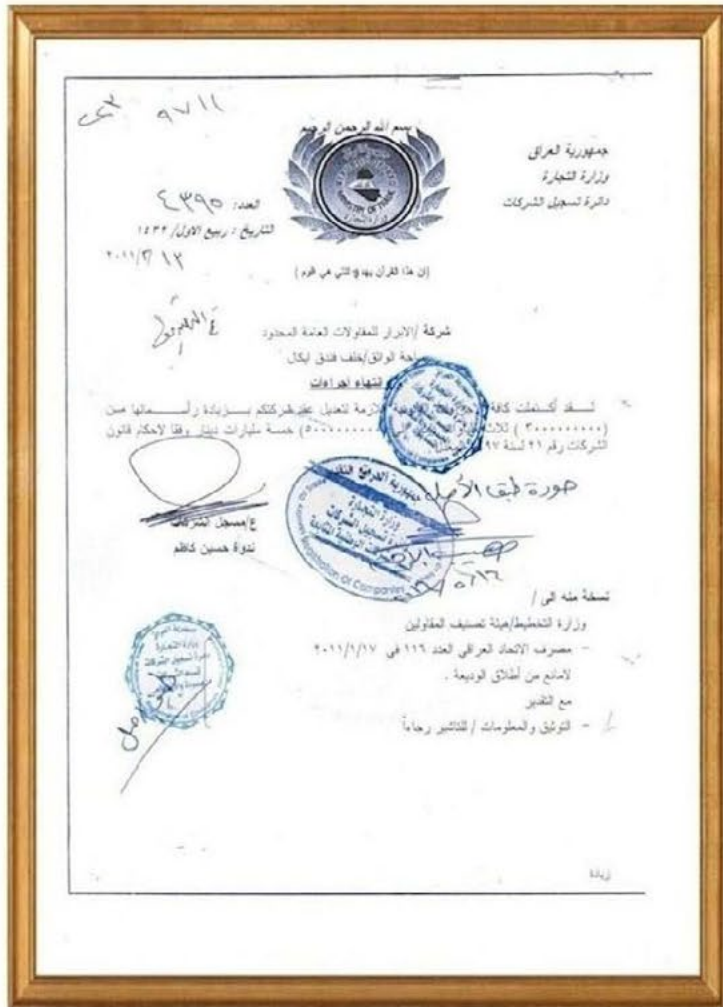 ٩٧١١
بسم الله الرحمن الرحيم
جمهورية العراق
وزارة التجارة
دائرة تسجيل الشركات
العدد: ٤٣٩٥
التاريخ : ربيع الاول/ ١٤٣٢
٢٠١١/٢/١٢
(إن هذا القرآن يهدي للتي هي اقوم)
شركة /الابرار للمقاولات العامة المحدود
ساحة الواثق/خلف فندق ايكال
انتهاء اجراءات
لـقد أكتملت كافة اللازمة لتعديل عقد شركتكم بـزيادة رأسـمالها من
(٣٠٠٠٠٠٠٠٠٠) خمسة مليارات دينار وفقا لاحكام قانون
الشركات رقم ٢١ لسنة ٩٧
صورة طبق الأصل
جمهورية العراق
وزارة التجارة
تسجيل الشركات
Registration of Companies
ع/مسجل الشركات
ندوة حسين كاظم
نسخة منه الى /
وزارة التخطيط/هيئة تصنيف المقاولين
- مصرف الاتحاد العراقي العدد ١١٦ في ٢٠١١/١/١٧
لامانع من أطلاق الوديعة .
مع التقدير
- التوثيق والمعلومات / للتاشير رجاءاً
وزارة التجارة
زيادة